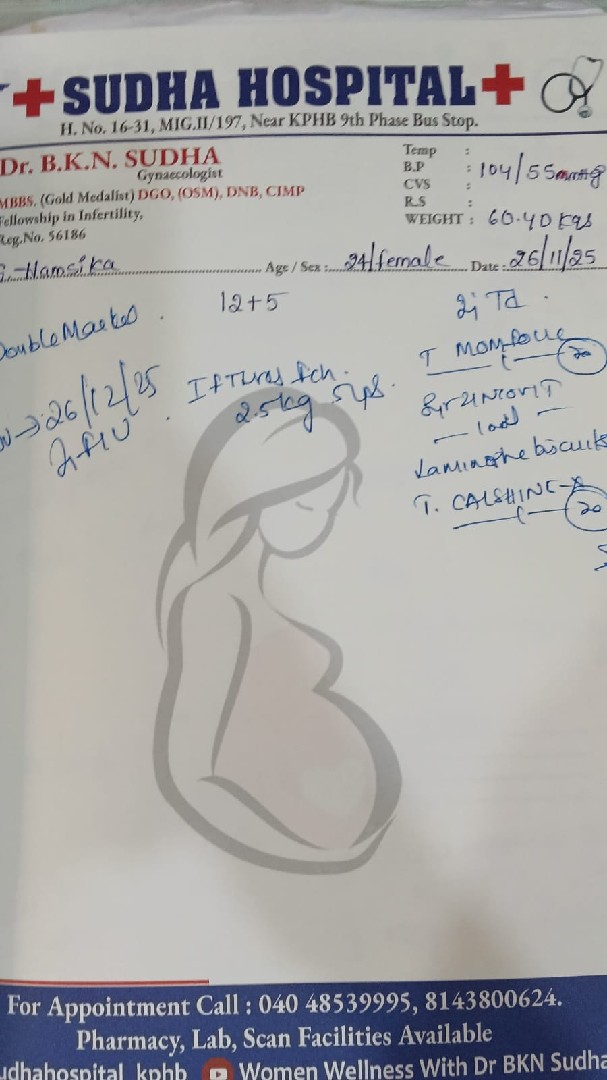 SUDHA HOSPITAL
H. No. 16-31, MIG.II/197, Near KPHB 9th Phase Bus Stop.
Dr. B.K.N. SUDHA
Gynaecologist
MBBS. (Gold Medalist) DGO, (OSM), DNB, CIMP
Fellowship in Infertility,
Reg.No. 56186
Temp :
B.P : 104/55mmHg
CVS :
R.S :
WEIGHT : 60.40 kgs
Hamsika Age / Sex : 24/female Date : 26/11/25
Double Marker . 12+5
26/12/25
2.5kg
Inj Td .
T 20
Syr
biscuits
T. CALSHINE-X
20
For Appointment Call : 040 48539995, 8143800624.
Pharmacy, Lab, Scan Facilities Available
udhahospital_kphb Women Wellness With Dr BKN Sudha